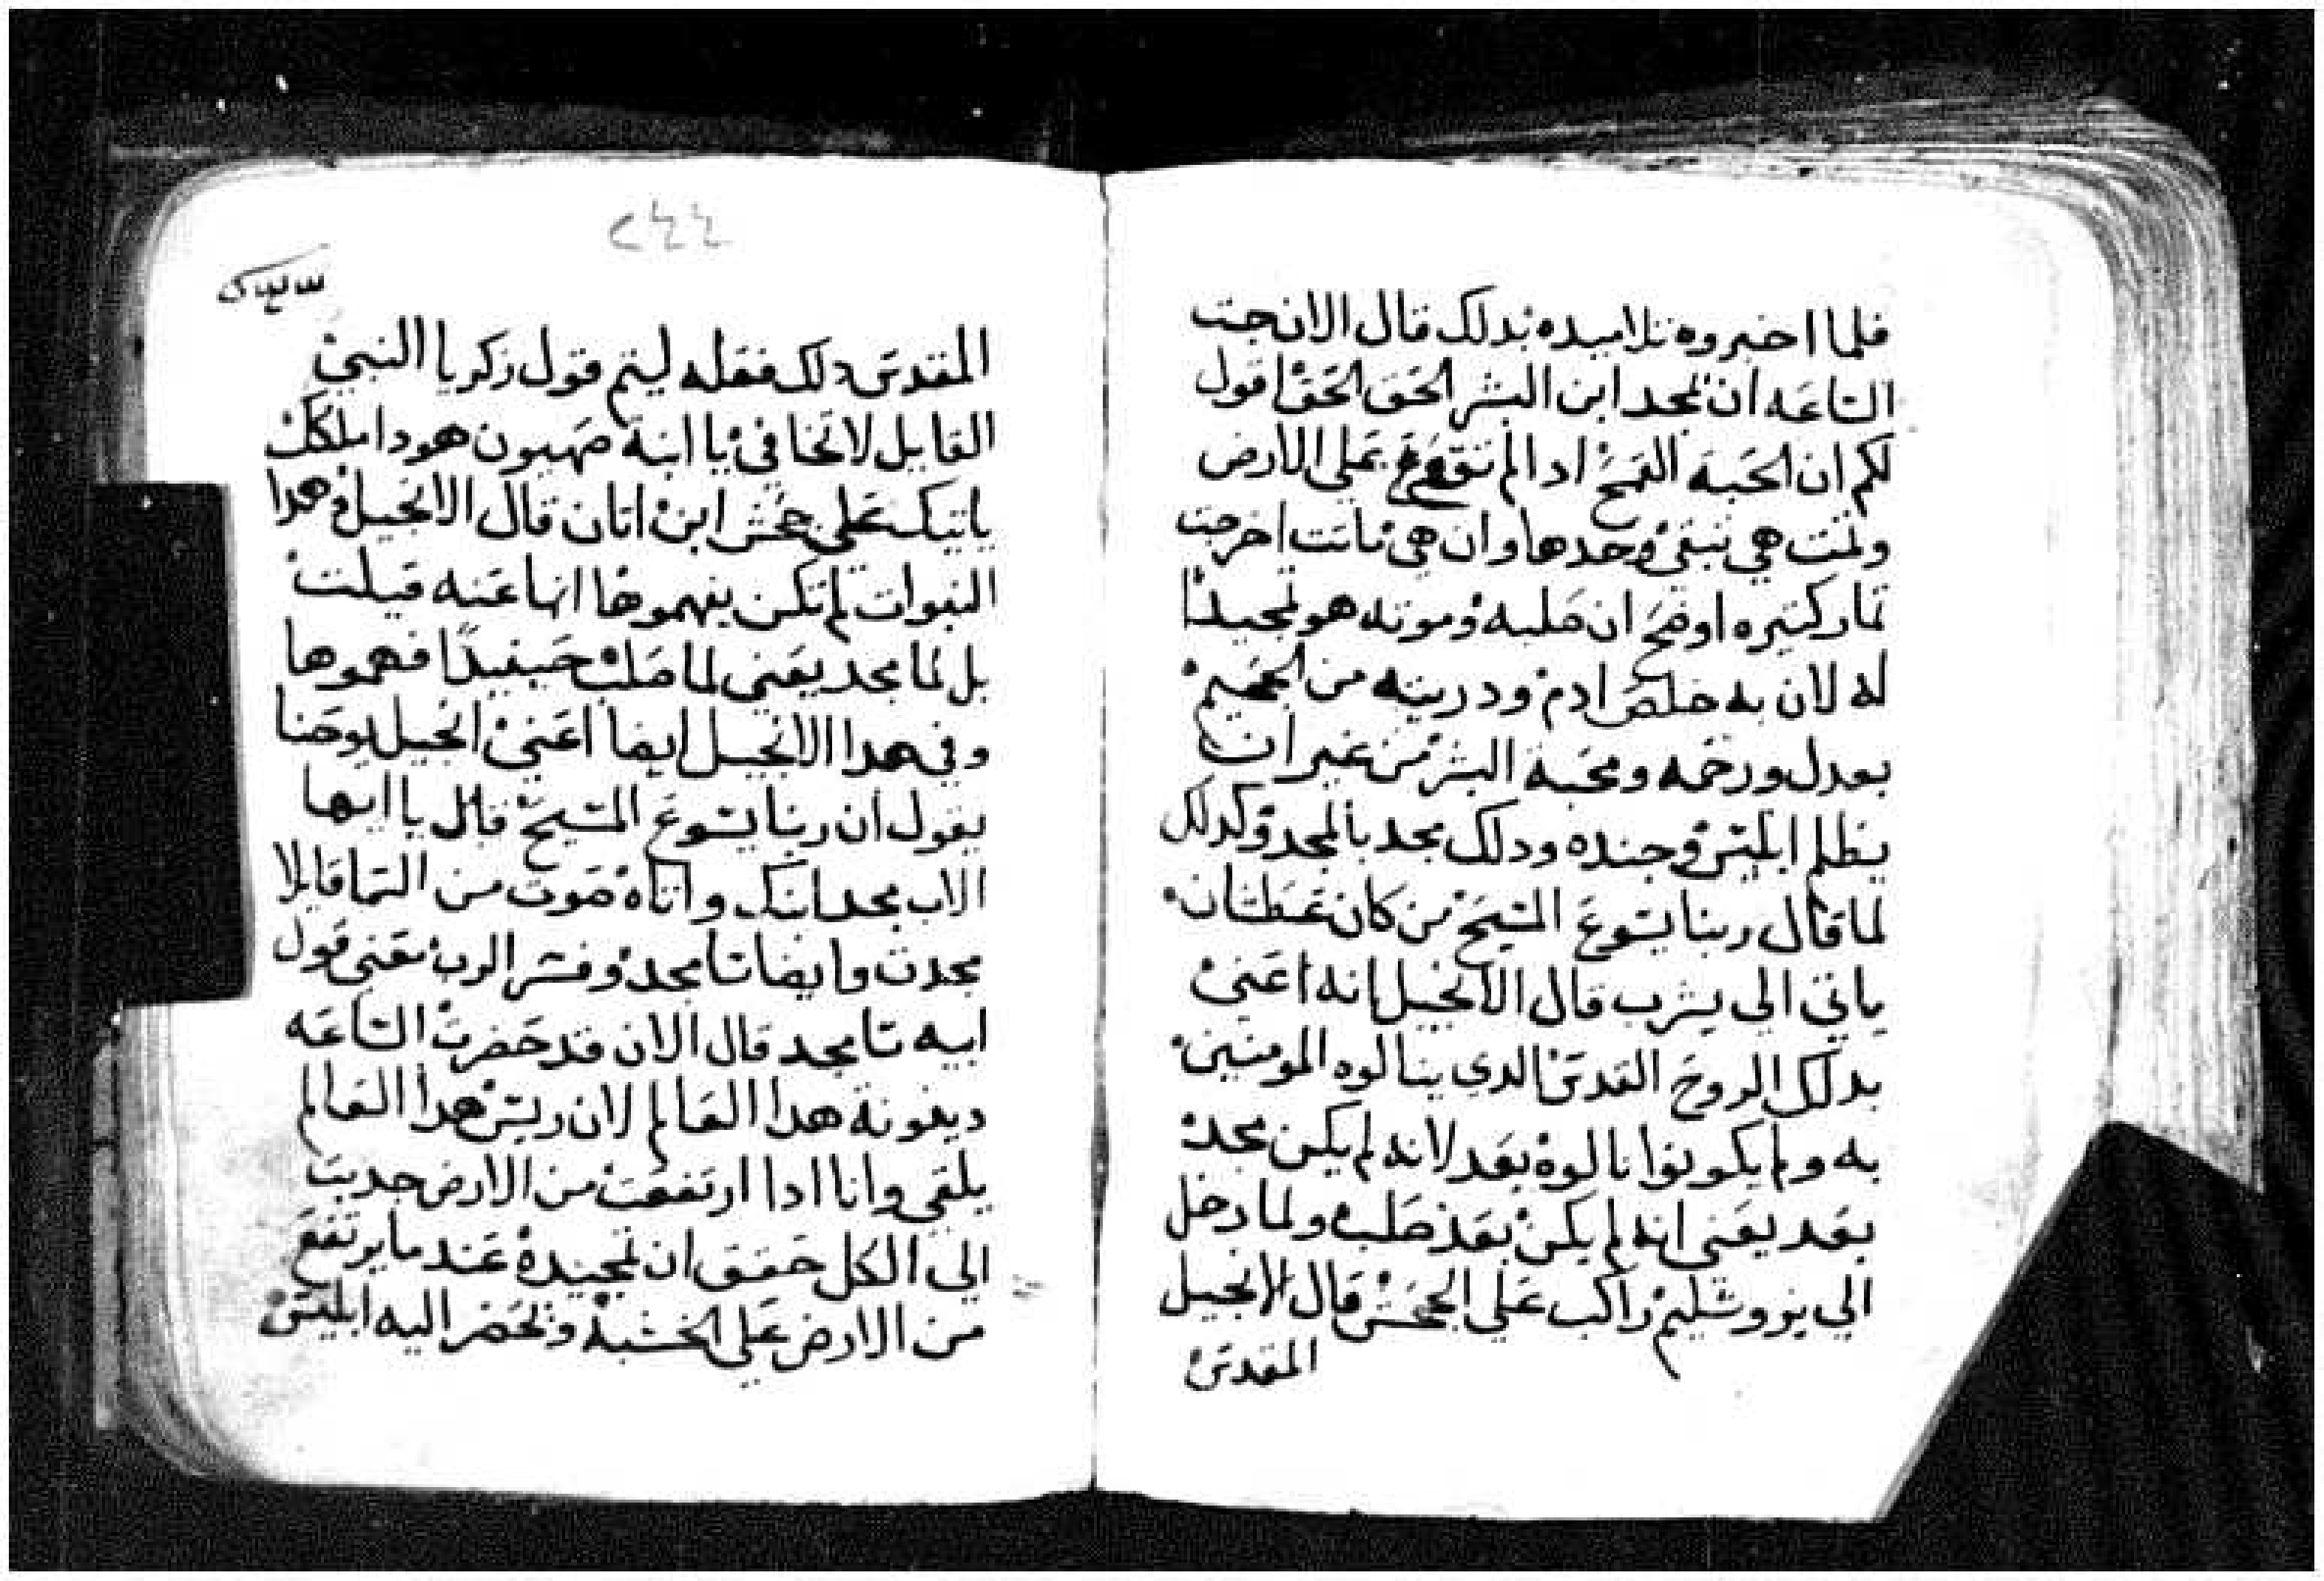 فلما اخبروه تلاميده بدلك قال الان جت
الساعه ان يمجد ابن البشر الحق الحق اقول
لكم ان الحبه القمح ادا لم تقع علي الارض
وتمت هي تبقي وحدها وان هي ماتت اخرجت
تمار كتيره اوضح ان صلبه وموته هو تمجيدا
له لان به خلص ادم ودريته من الجحيم
بعدل ورحمه ومحبة البشر من غير ان
يظلم ابليس وجنده ودلك مجد بالمجد وكدلك
لما قال ربنا يسوع المسيح من كان عطشان
ياتي الي يشرب قال الانجيل انه اعني
بدلك الروح القدس الدي ينالوه المومنين
به ولم يكونوا نالوه بعد لانه لم يكن مجد
بعد يعني انه لم يكن بعد صلب ولما دخل
الي يروشليم راكب علي الجحش قال الانجيل
المقدس
٢٤٤
المقدس دلك فعله ليتم قول زكريا النبي
القايل لا تخافي يا ابنة صهيون هودا ملكك
ياتيك علي جحش ابن اتان قال الانجيل وهدا
النبوات لم تكن يفهموها انها عنه قيلت
بل لما مجد يعني لما صلب حينيدا فهموها
وفي هدا الانجيل ايضا اعني انجيل يوحنا
يقول ان ربنا يسوع المسيح قال يا ايها
الاب مجد ابنك واتاه صوت من السما قايلا
مجدت وايضا سامجد وفسر الرب معني قول
ابيه سامجد قال الان قد حضرت الساعه
دينونة هدا العالم لان ريس هدا العالم
يلقي وانا ادا ارتفعت من الارض جدبت
الي الكل حقق ان تمجيده عند ما يرتفع
من الارض علي الخشبة وتحضر اليه ابليس